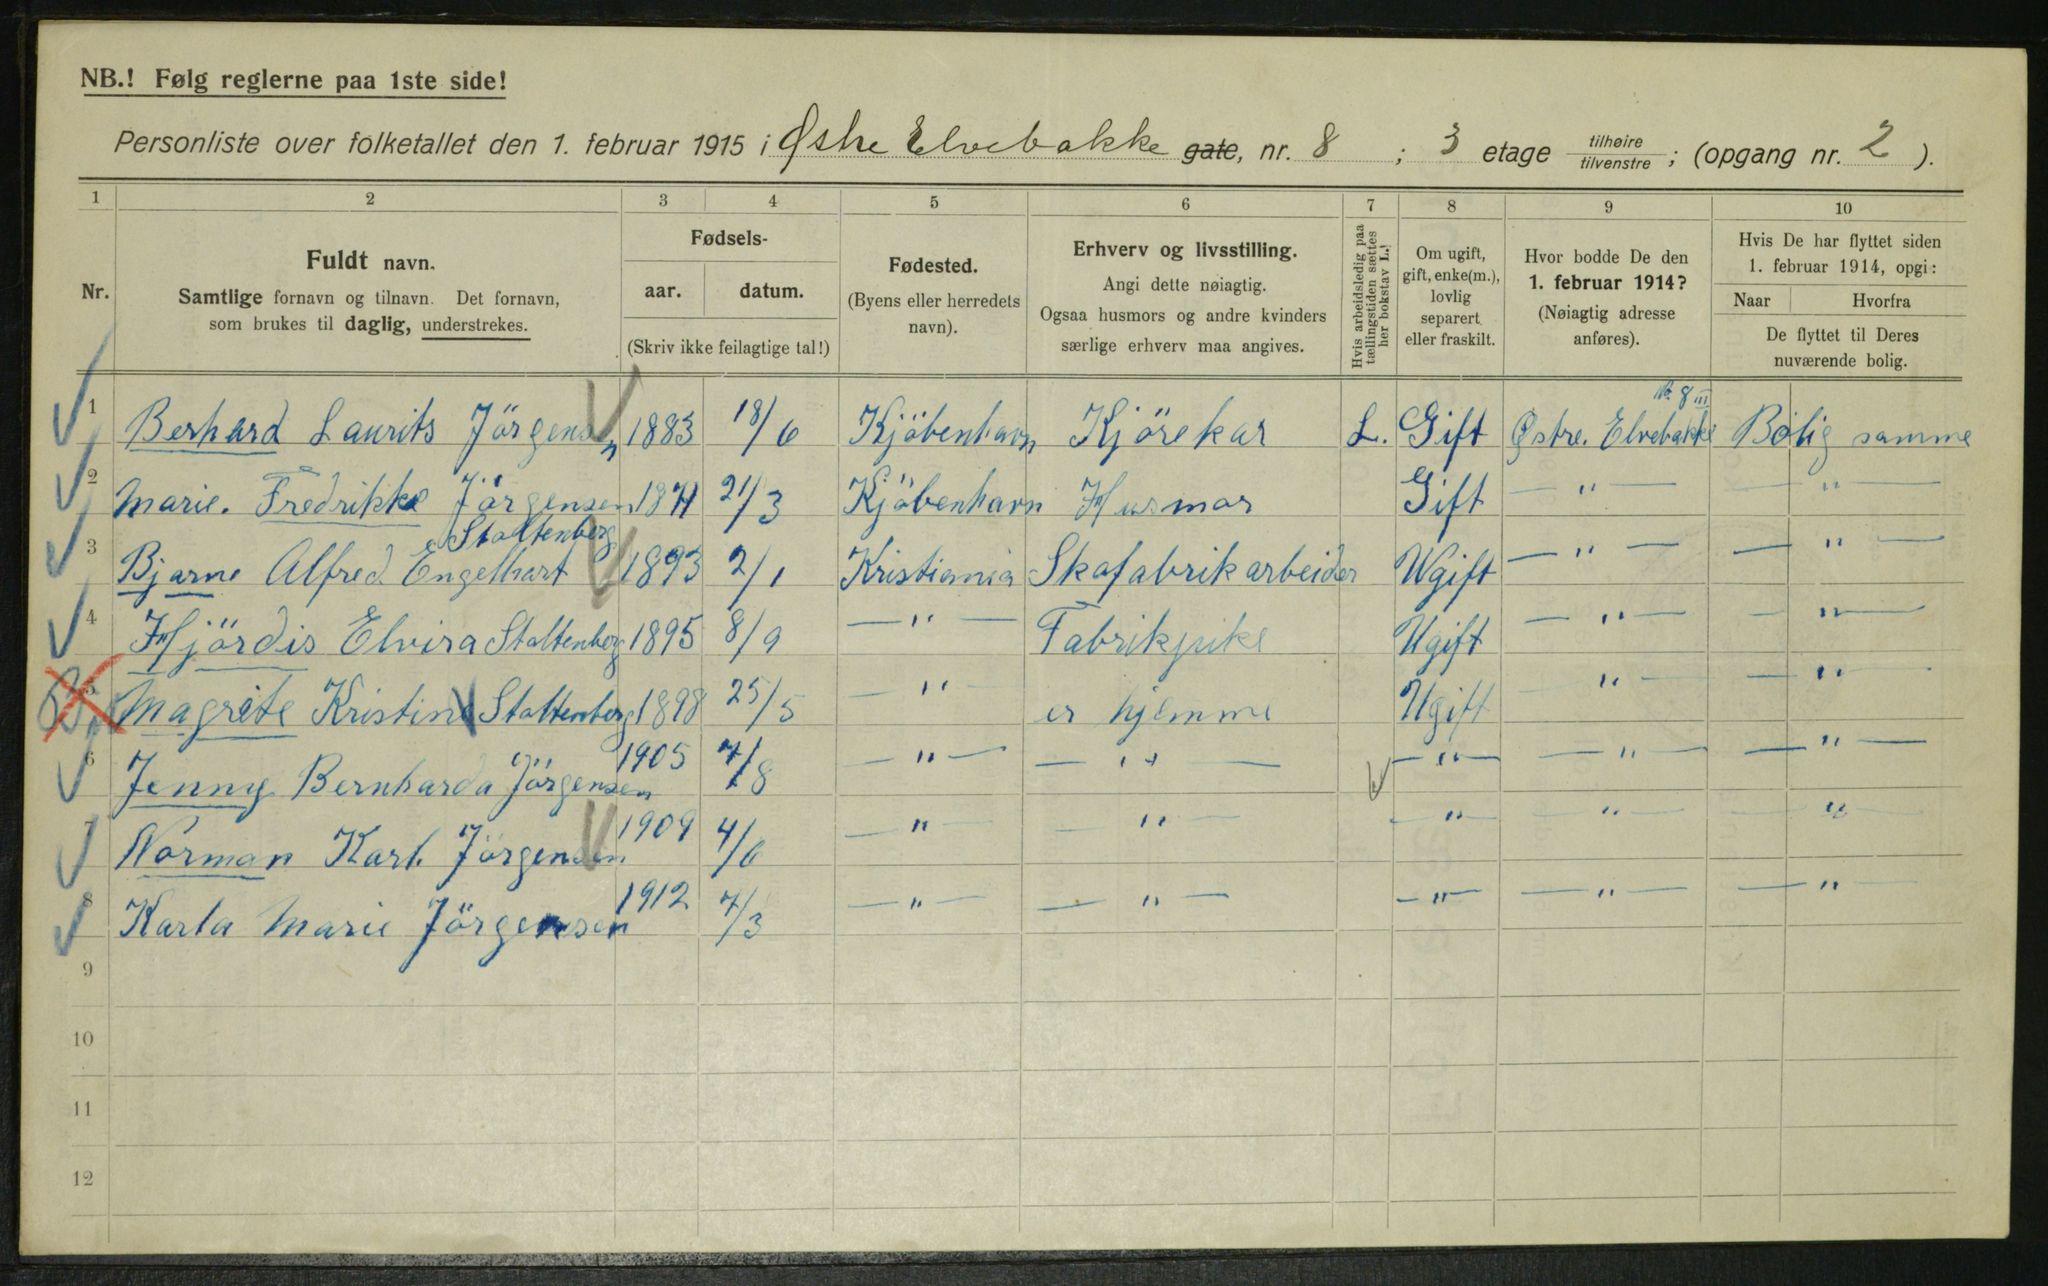 NB.! Følg reglerne paa 1ste side!
Personliste over folketallet den 1. februar 1915 i Østre Elvebakke gate, nr. 8 ; 3 etage tilhøire tilvenstre ; (opgang nr. 2 ).
1 2 3 4 5 6 7 8 9 10
Nr.
Fuldt navn.
Samtlige fornavn og tilnavn. Det fornavn,
som brukes til daglig, understrekes.
Fødsels-
aar. datum.
(Skriv ikke feilagtige tal!)
Fødested.
(Byens eller herredets
navn).
Erhverv og livsstilling.
Angi dette nøiagtig.
Ogsaa husmors og andre kvinders
særlige erhverv maa angives.
Hvis arbeidsledig paa
tællingstiden sættes
her bokstav L.!
Om ugift,
gift, enke(m.),
lovlig
separert
eller fraskilt.
Hvor bodde De den
1. februar 1914?
(Nøiagtig adresse
anføres).
Hvis De har flyttet siden
1. februar 1914, opgi:
Naar Hvorfra
De flyttet til Deres
nuværende bolig.
No. 8 III
1 Berhard Laurits Jörgensen 1883 18/6 Kjöbenhavn Kjörekar L. Gift Østre. Elvebakke Bolig samme
2 Marie. Fredrikke Jörgensen 1871 21/3 Kjöbenhavn Husmor Gift — " — — " —
Stoltenberg
3 Bjarne Alfred Engelhart 1893 2/1 Kristiania Skofabrikarbeider Ugift — " — — " —
4 Hjördis Elvira Stoltenberg 1895 8/9 — " — Fabrikpike Ugift — " — — " —
5 Magrete Kristine Stoltenberg 1898 25/5 — " — er hjemme Ugift — " — — " —
6 Jenny Bernharda Jörgensen 1905 7/8 — " — — " — — " — — " — — " —
7 Norman Karl. Jörgensen 1909 4/6 — " — — " — — " — — " — — " —
8 Karla Marie Jörgensen 1912 7/3 — " — — " — — " — — " — — " —
9
10
11
12